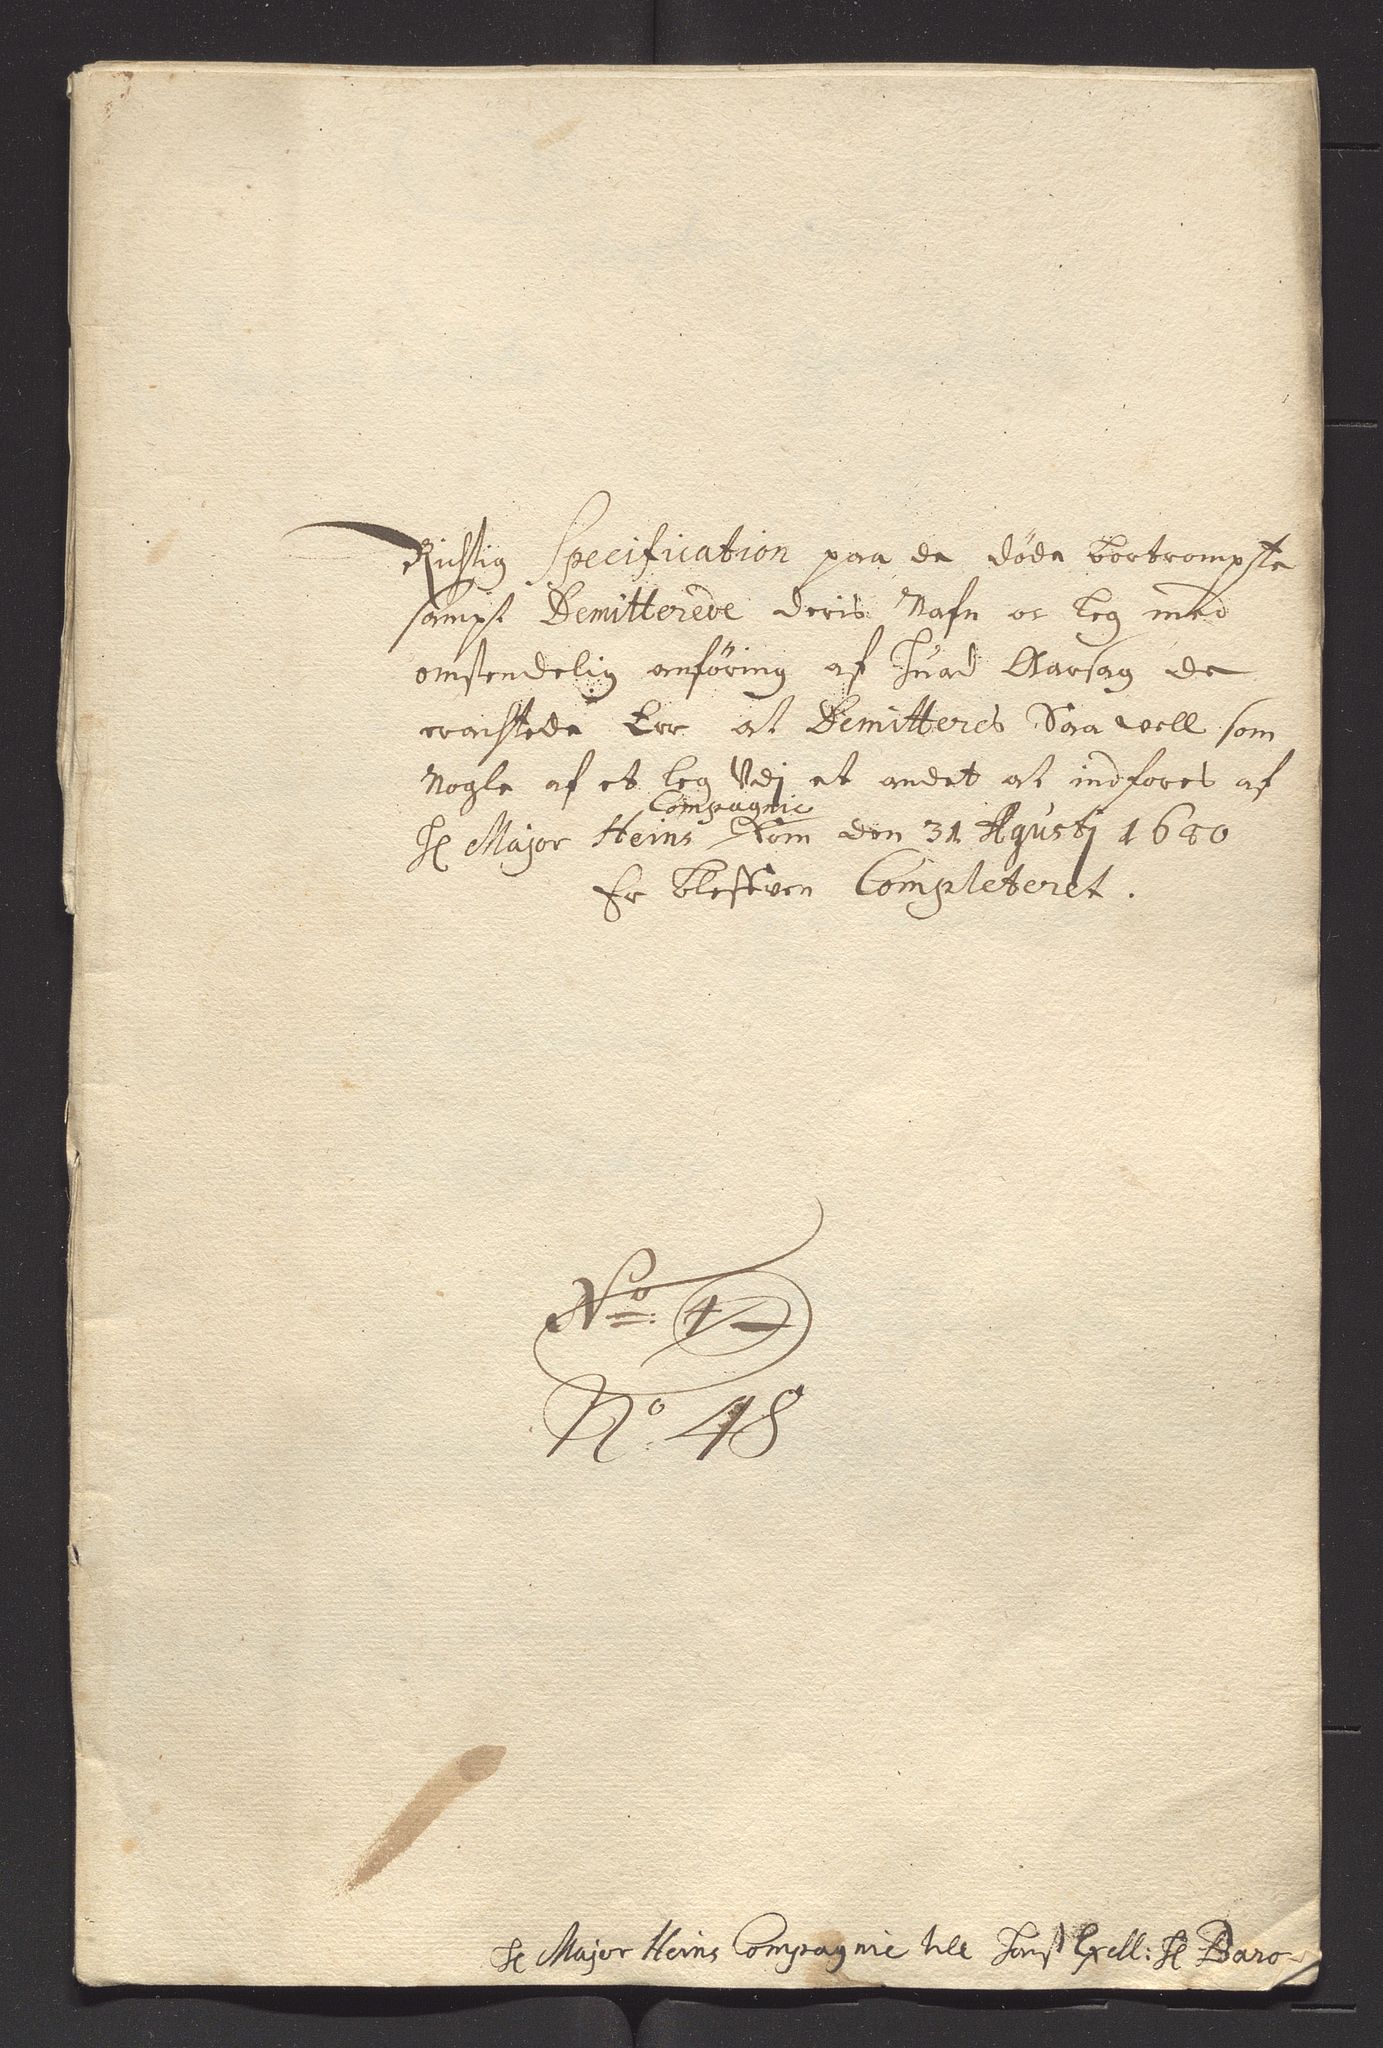 Richtig Specification paa de døde bortrømpte
sampt Demitterede deris Nafn oc leg med
omstendelig anføring af huad Aarsag de
erachtede Err at Demitteres Saa vell som
Nogle af et leg Vdj et andet at indføres af
Hr Major Heins Compagnie som den 31 Agustj 1680
Er bleffven Completeret.
No: 4
No. 48
Hr Major Heins Compagnie till hans Exell: Hr Baro